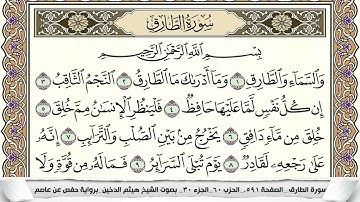 سُورَةُ الطَّارِقِ
بِسْمِ اللَّهِ الرَّحْمَٰنِ الرَّحِيمِ
وَالسَّمَاءِ وَالطَّارِقِ ١ وَمَا أَدْرَاكَ مَا الطَّارِقُ ٢ النَّجْمُ الثَّاقِبُ ٣
إِن كُلُّ نَفْسٍ لَّمَّا عَلَيْهَا حَافِظٌ ٤ فَلْيَنظُرِ الْإِنسَانُ مِمَّ خُلِقَ ٥
خُلِقَ مِن مَّاءٍ دَافِقٍ ٦ يَخْرُجُ مِن بَيْنِ الصُّلْبِ وَالتَّرَائِبِ ٧ إِنَّهُ
عَلَىٰ رَجْعِهِ لَقَادِرٌ ٨ يَوْمَ تُبْلَى السَّرَائِرُ ٩ فَمَا لَهُ مِن قُوَّةٍ وَلَا
سورة الطارق_ الصفحة ٥٩١_ الحزب ٦٠_ الجزء ٣٠_ بصوت الشيخ هيثم الدخين_ برواية حفص عن عاصم